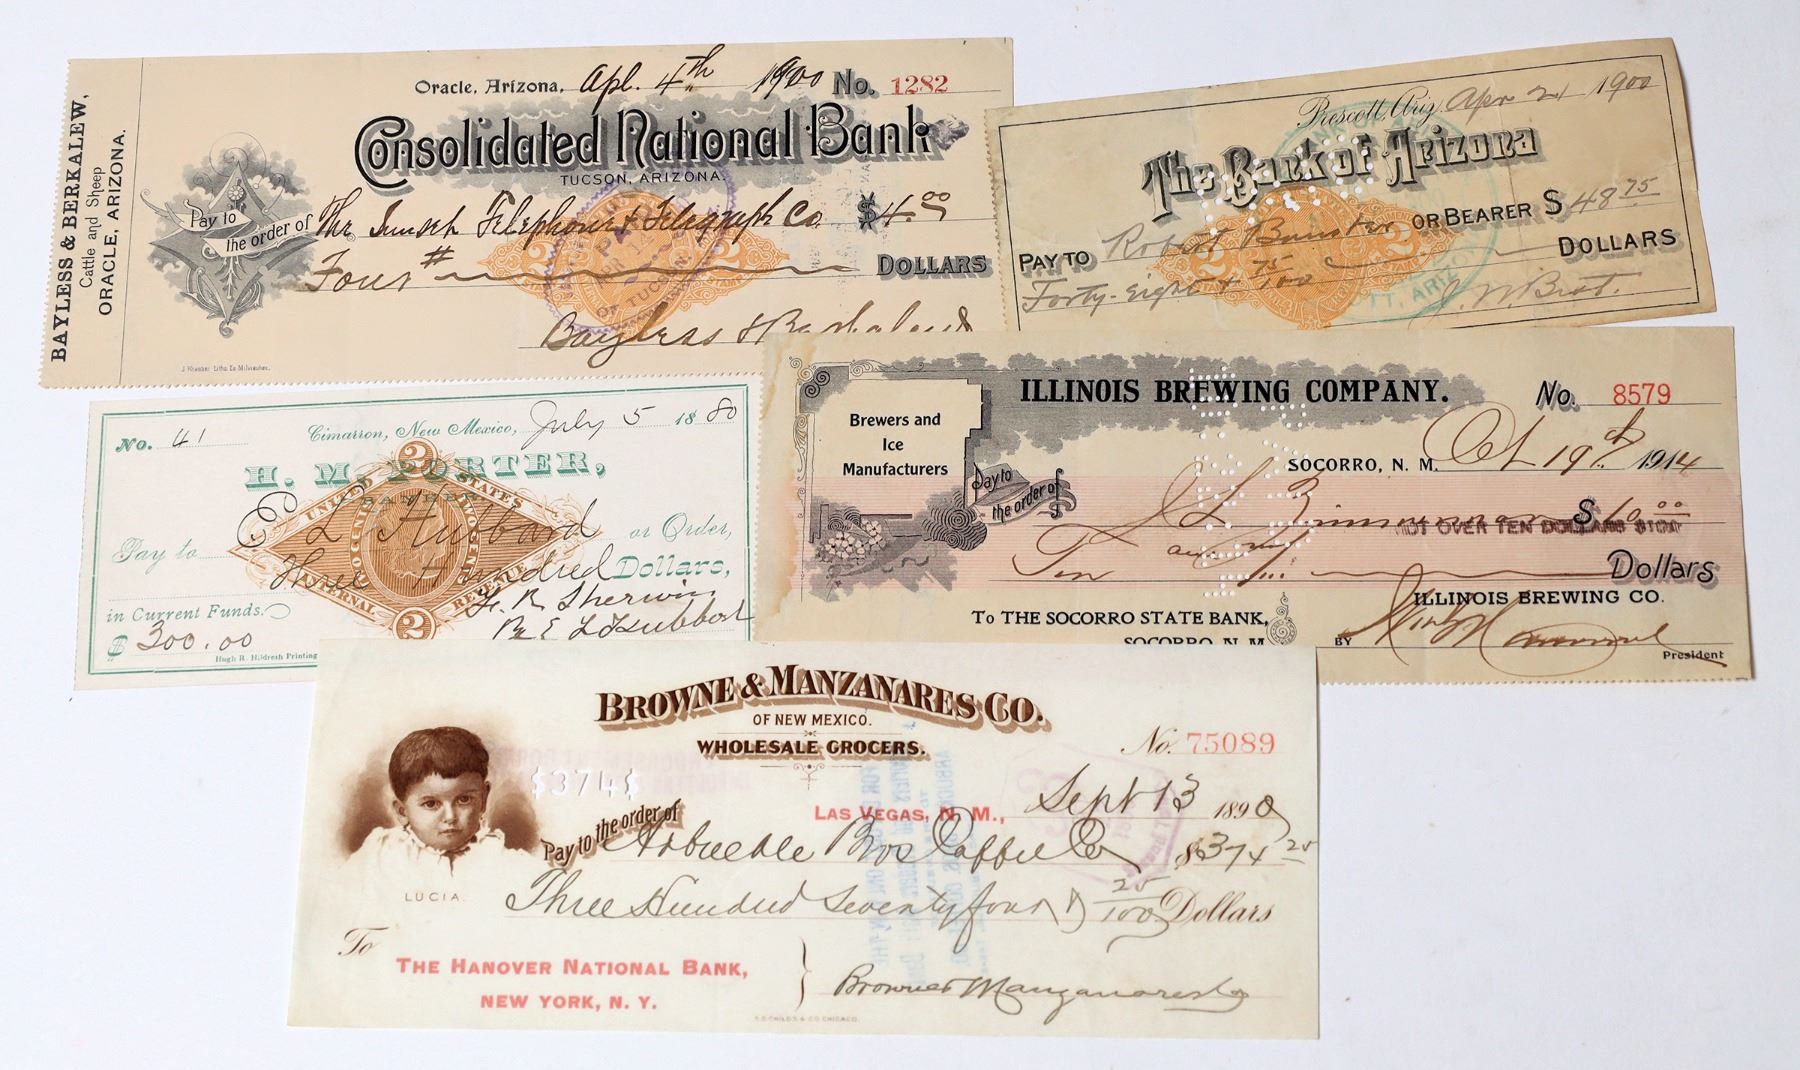 BAYLESS & BERKALEW,
Cattle and Sheep
ORACLE, ARIZONA.
Oracle, Arizona, Apl. 4th 1900 No. 1282
Consolidated National Bank
TUCSON, ARIZONA.
Pay to the order of The Sunset Telephone & Telegraph Co $4.00
Four # DOLLARS
Bayless & Berkalew
Prescott, Ariz, Apr 21 1900
The Bank of Arizona
PAY TO Robert OR BEARER $ 48 75
Forty-eight & 75/100 DOLLARS
No. 41 Cimarron, New Mexico, July 5 1880
H. M. PORTER,
BANKER
UNITED STATES INTERNAL REVENUE
TWO CENTS
2
Pay to E L Hubbard or Order,
Three Hundred Dollars,
in Current Funds.
$ 300.00
H. R. Sherwin
By E L Hubbard
Hugh R. Hildreth Printing
ILLINOIS BREWING COMPANY. No. 8579
Brewers and
Ice
Manufacturers
SOCORRO, N. M. Oct 19th 1914
Pay to the order of J L Zimmerman $ 10.00
NOT OVER TEN DOLLARS $10
Ten and Dollars
ILLINOIS BREWING CO.
TO THE SOCORRO STATE BANK,
SOCORRO, N. M.
BY
President
BROWNE & MANZANARES CO.
OF NEW MEXICO.
WHOLESALE GROCERS.
No. 75089
$374$
LAS VEGAS, N. M., Sept 13 1890
Pay to the order of Arbuckle Bros Coffee Co $374 25
LUCIA.
Three Hundred Seventy four 25/100 Dollars
To
THE HANOVER NATIONAL BANK,
NEW YORK, N. Y.
Browne & Manzanares Co
S.D. CHILDS & CO. CHICAGO.